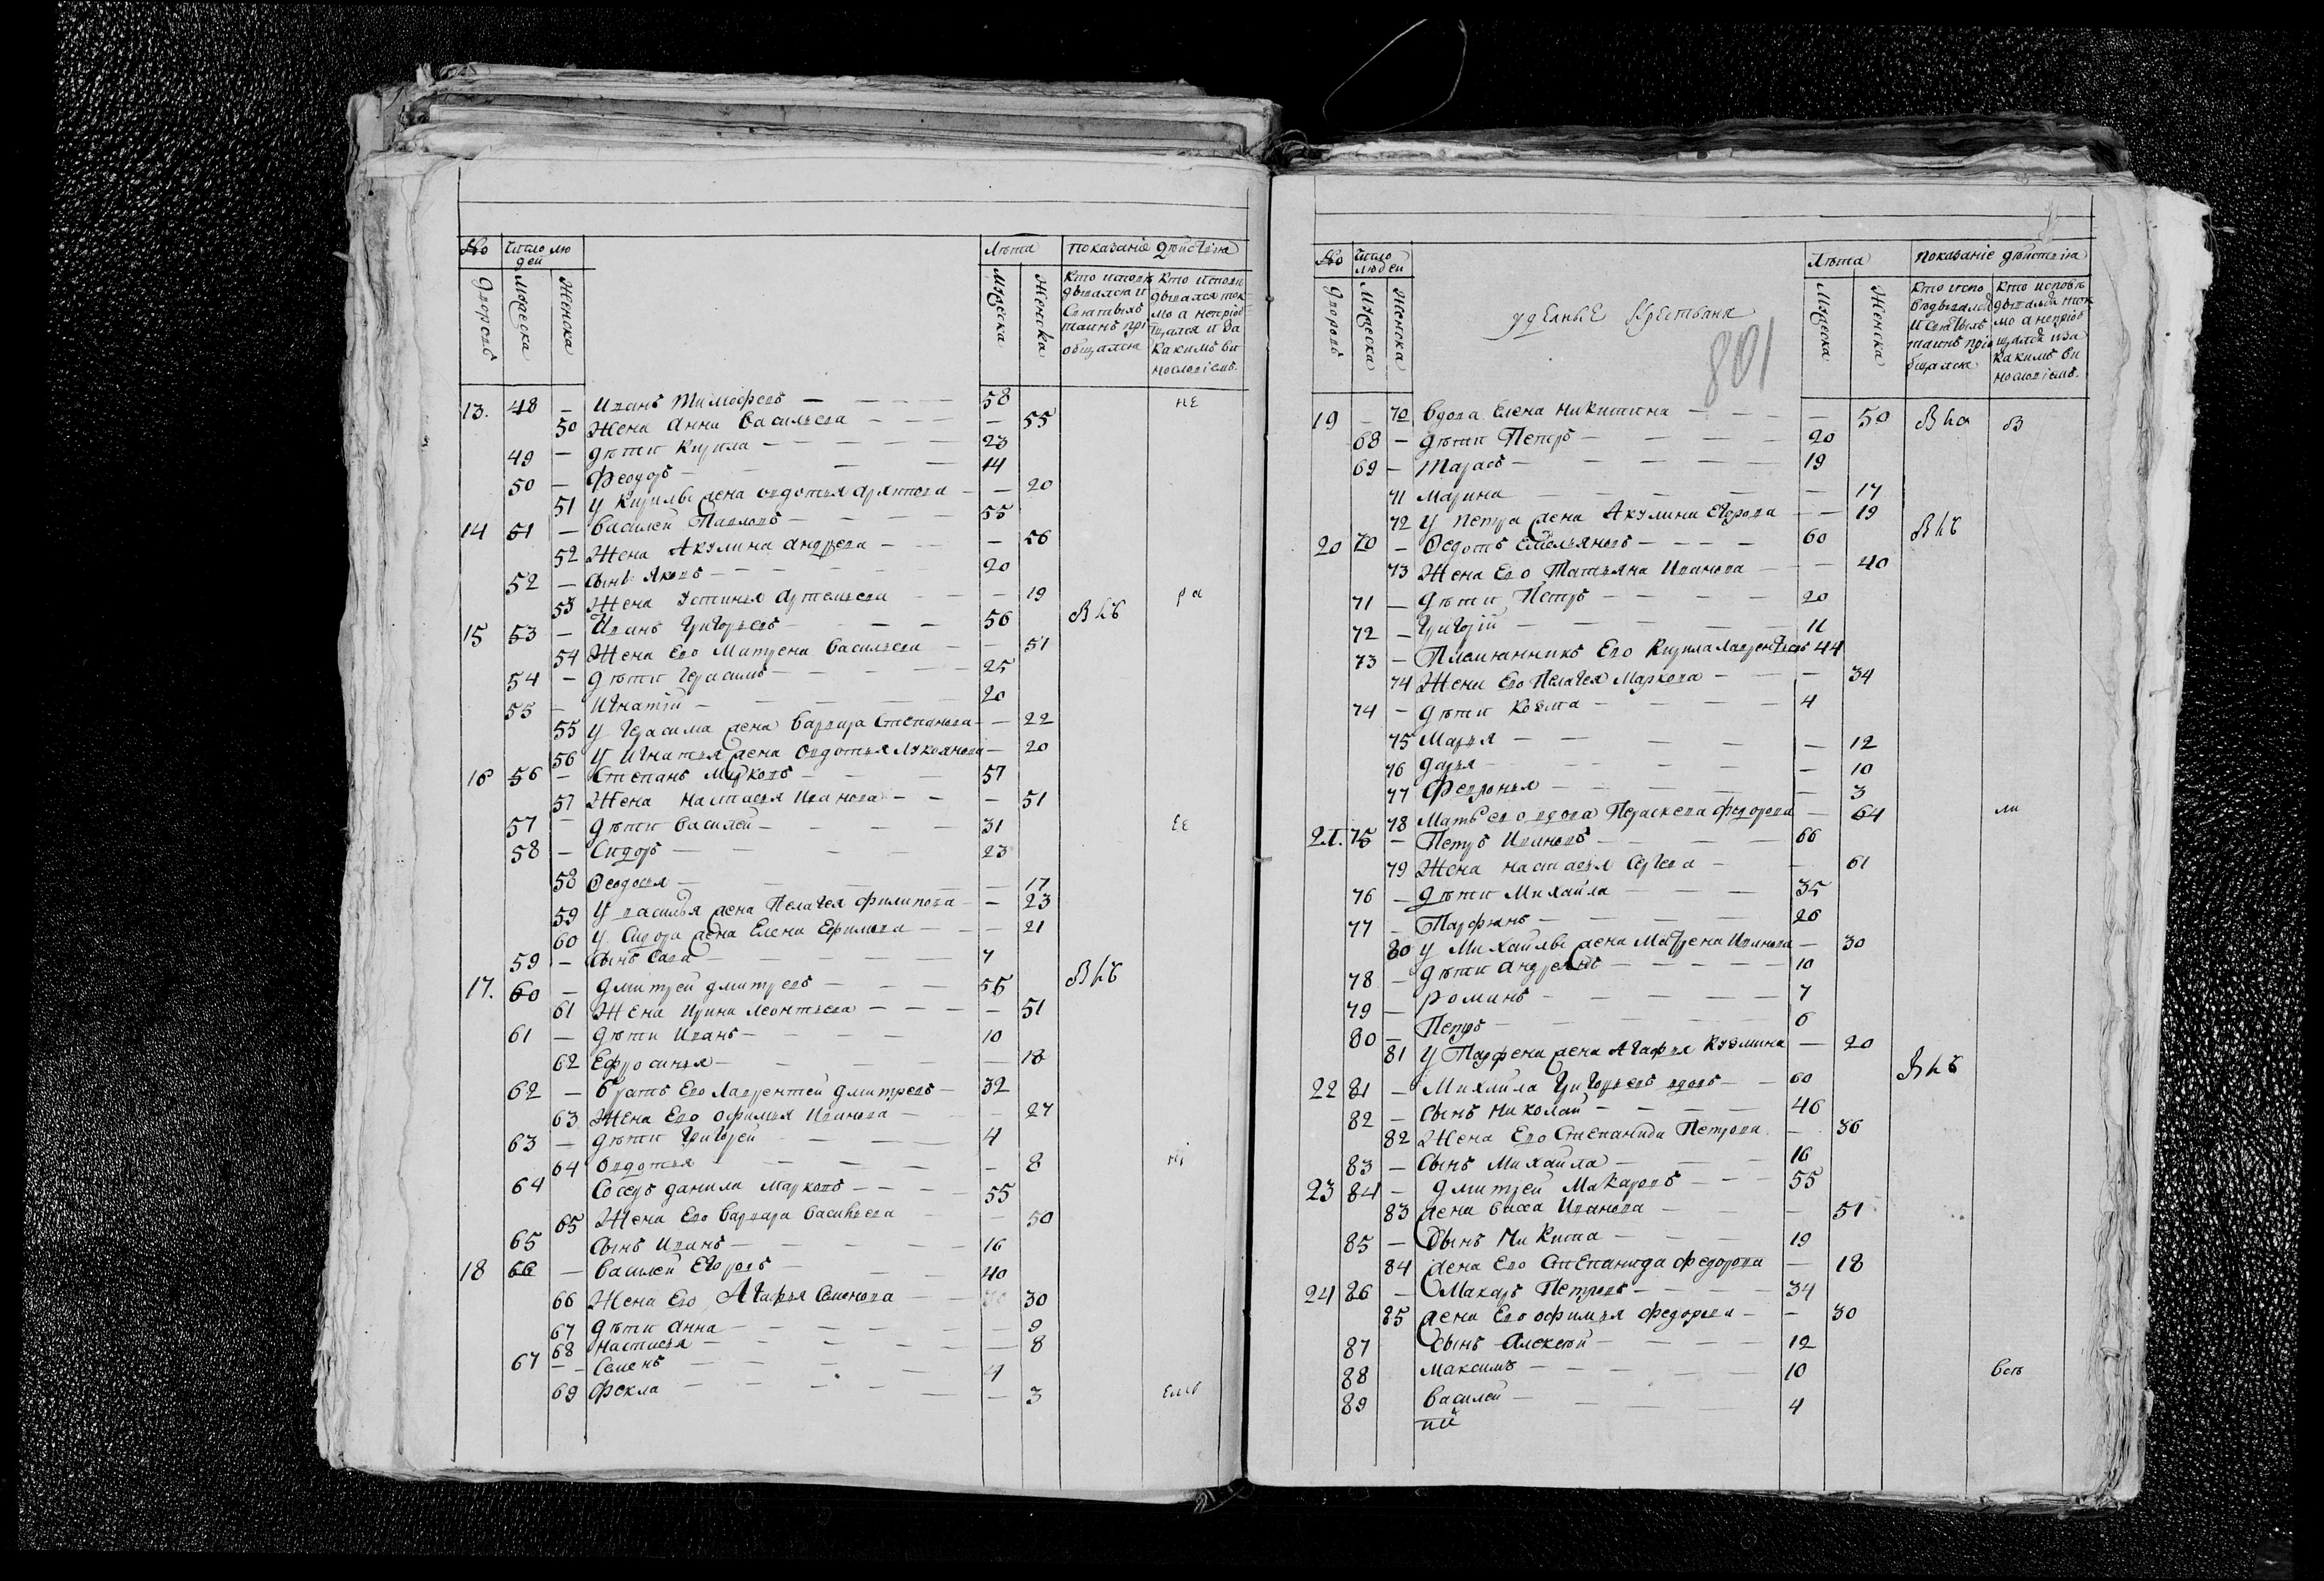 № Число лю Лѣта показаніе дѣйствїя
дей
дворовъ Мужеска Женска Мужеска Женска Кто исповѣ Кто исповѣ
дывался и дывался ток
Святыхъ мо а непріоб
таинъ прі щался и за
общался какимъ ви
нословіемъ.
13. 48 – Иванъ Тимофеевъ – 58 не
50 Жена Анна Васильева – 55
49 – дѣти Кирила – 23
50 – Феодоръ – 14
51 У Кирилы жена Овдотья – 20
14 51 – Василей Павловъ – 55
52 Жена Акулина Андреева – 56
52 – Сынъ Яковъ – 20
53 Жена Устинья Артемьева – 19 ра
15 53 – Иванъ Григорьевъ – 56
54 Жена Его Матрена Васильева – 51
54 – дѣти Герасимъ – 25
55 – Игнатїй – 20
55 У Герасима жена Варвара Степанова – 22
56 У Игнатья жена Овдотья Лукоянова – 20
16 56 – Степанъ Марковъ – 57
57 Жена Настасья Иванова – 51
57 – дѣти Василей – 31 ее
58 – Сидоръ – 23
58 Ѳеодосья – 17
59 У Василья жена Пелагея Филипова – 23
60 У Сидора жена Елена Ефимова – 21
59 – Сынъ Сава – 7
17. 60 – Дмитрей Дмитревъ – 56
61 Жена Ирина Леонтьева – 51
61 – дѣти Иванъ – 10
62 Ефросинья – 18
62 – братъ Его Лаврентей Дмитревъ – 32
63 Жена Его Офимья Иванова – 27
63 – дѣти Григорей – 4
64 Овдотья – 8
64 Соседъ Данила Марковъ – 55
65 Жена Его Варвара Васильева – 50
65 Сынъ Иванъ – 16
18 66 – Василей Егоровъ – 40
66 Жена Его Агафья Семенова – 30
67 дѣти Анна – 9
68 Настасья – 8
67 – Семенъ – 4
69 Фекла – 3
№ Число Лѣта показаніе дѣйствїя
людей
дворовъ Мужеска Женска Удельные Крестьяне Мужеска Женска Кто испо Кто исповѣ
вѣдывался дывался ток
и Святыхъ мо а непріоб
таинъ прїо щался и за
бщался какимъ ви
нословіемъ.
801
19 – 70 Вдова Елена Никитина – 50 В
68 – дѣти Петръ – 20
69 – Тарасъ – 19
71 Марина – 17
72 У Петра жена Акулина Егорова – 19
20 70 – Ѳедотъ Емельяновъ – 60
73 Жена Его Татьяна Иванова – 40
71 – дѣти Петръ – 20
72 – Григорїй – 11
73 – Племянникъ Его Кирила Лаврентьевъ 44
74 Жена Его Пелагея Маркова – 34
74 – дѣти Козма – 4
75 Марья – 12
76 Дарья – 10
77 Февронья – 3
78 Мать его вдова Параскева Федорова – 64 ли
21. 75 – Петръ Ивановъ – 66
79 Жена Настасья Сергеева – 61
76 – дѣти Михайла – 35
77 – Парфенъ – 26
80 У Михайлы жена Матрена Иванова – 30
78 – дѣти Андреянъ – 10
79 – Романъ – 7
80 – Петръ – 6
81 У Парфена жена Агафья Кузмина – 20
22 81 – Михайла Григорьевъ вдовъ – 60
82 – Сынъ Николай – 46
82 Жена Его Степанида Петрова – 36
83 – Сынъ Михайла – 16
23 84 – Дмитрей Макаровъ – 55
83 жена Васса Иванова – 51
85 – Сынъ Никита – 19
84 жена Его Степанида Федорова – 18
24 86 – Макаръ Петровъ – 34
85 жена Его Офимья Федорова – 30
87 Сынъ Алексѣй – 12
88 Максимъ – 10
89 Василей – 4